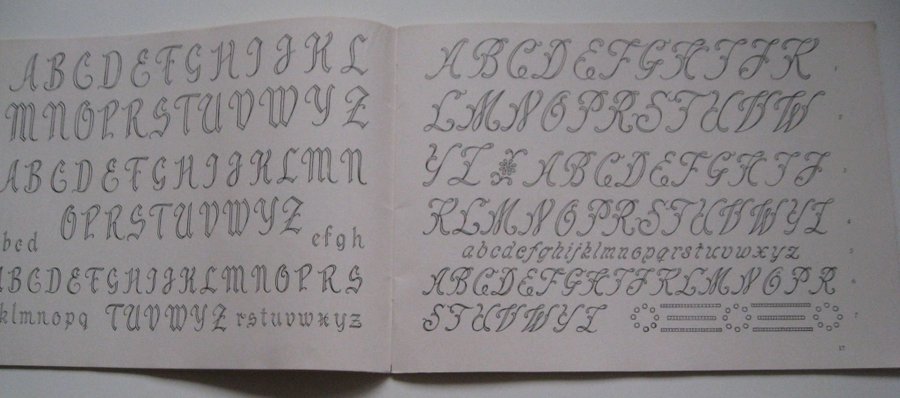 ABCDEFGHIJKL
MNOPRSTUVWYZ
ABCDEFGHIJKLMN
OPRSTUVWYZ
bcd efgh
ABCDEFGHIJKLMNOPRS
klmnopq TUVWYZ rstuvwxyz
ABCDEFGHIJK 1
LMNOPRSTUVW 2
YZ ABCDEFGHIJ 3
KLMNOPRSTUVWYZ 4
abcdefghijklmnopqrstuvwxyz 5
ABCDEFGHIJKLMNOPR 6
STUVWYZ 7
17